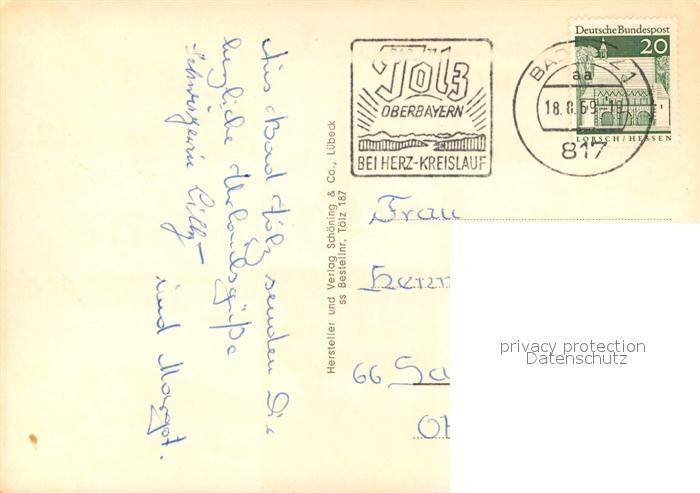 Aus Bad Tölz senden Dir
herzliche Urlaubsgrüße
Schwägerin Lilly
und Margot.
Hersteller und Verlag Schöning & Co., Lübeck
ss Bestellnr. Tölz 187
BAD
Tölz
OBERBAYERN
BEI HERZ-KREISLAUF
BAD TÖLZ 1
aa
18.8.69-18
817
Deutsche Bundespost
20
LORSCH/HESSEN
Frau
66 Sa
privacy protection
Datenschutz